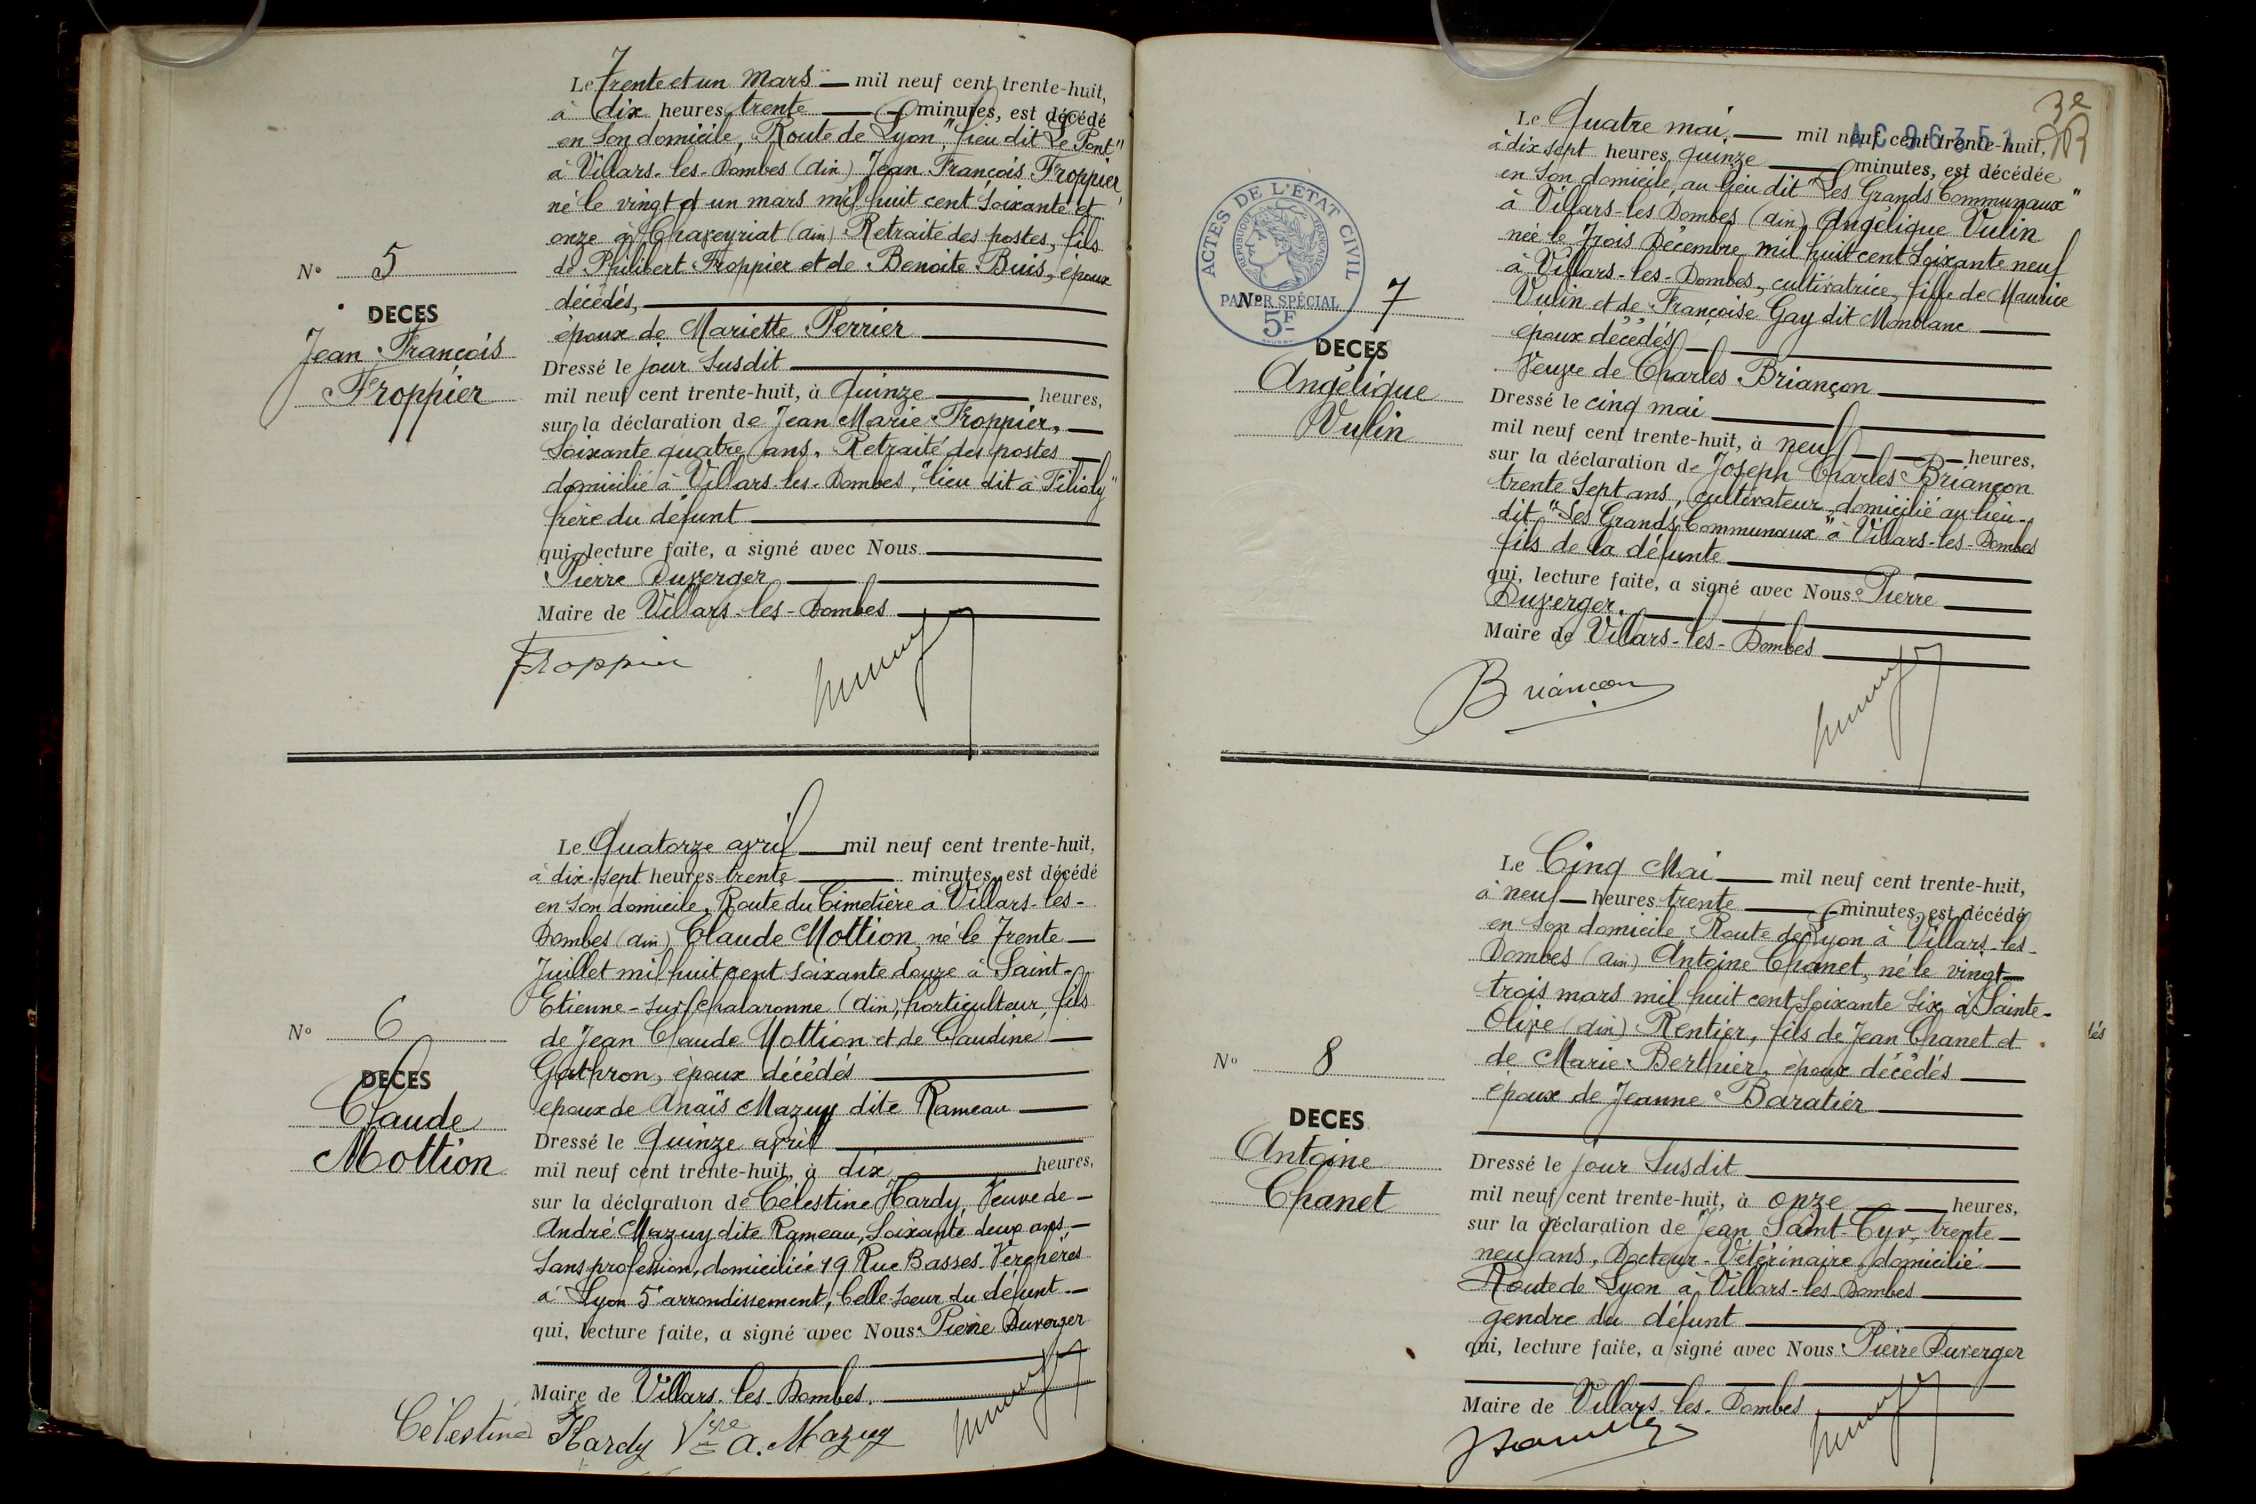 Le Trente et un mars mil neuf cent trente-huit,
à dix heures trente minutes, est décédé
en son domicile, Route de Lyon, "lieu dit Le Pont"
à Villars-les-Dombes (Ain) Jean François Froppier,
né le vingt et un mars mil huit cent soixante et
onze à Chaveyriat (Ain) Retraité des postes, fils
de Philibert Froppier et de Benoite Buis, époux
décédés,
époux de Mariette Perrier
Dressé le jour susdit
mil neuf cent trente-huit, à quinze heures,
sur la déclaration de Jean Marie Froppier,
soixante quatre ans, Retraité des postes
domicilié à Villars-les-Dombes, "lieu dit à Filioly"
frère du défunt
qui, lecture faite, a signé avec Nous
Pierre Duverger
Maire de Villars-les-Dombes
Froppier
N° 5
DECES
Jean François
Froppier
Le Quatorze avril mil neuf cent trente-huit,
à dix-sept heures trente minutes, est décédé
en son domicile, Route du Cimetière à Villars-les-
Dombes (Ain) Claude Mottion, né le Trente
Juillet mil huit cent soixante douze à Saint-
Etienne-sur Chalaronne (Ain), horticulteur, fils
de Jean Claude Mottion et de Claudine
Gathron, époux décédés
époux de Anaïs Mazuy dite Rameau
Dressé le quinze avril
mil neuf cent trente-huit, à dix heures,
sur la déclaration de Célestine Hardy, Veuve de
André Mazuy dite Rameau, soixante deux ans
sans profession, domiciliée 19 Rue Basses-Verchères
à Lyon 5e arrondissement, belle-sœur du défunt
qui, lecture faite, a signé avec Nous Pierre Duverger
Maire de Villars-les-Dombes
Célestine Hardy Vve A. Mazuy
N° 6
DECES
Claude
Mottion
3e
AC 96351
ACTES DE L'ETAT CIVIL
REPUBLIQUE FRANÇAISE
PAPIER SPÉCIAL
5F
Le Quatre mai mil neuf cent trente-huit,
à dix sept heures quinze minutes, est décédée
en son domicile, au lieu dit "Les Grands Communaux"
à Villars-les-Dombes (Ain) Angélique Vulin
née le Trois Décembre mil huit cent soixante neuf
à Villars-les-Dombes, cultivatrice, fille de Maurice
Vulin et de Françoise Gay dit Monblanc
époux décédés
Veuve de Charles Briançon
Dressé le cinq mai
mil neuf cent trente-huit, à neuf heures,
sur la déclaration de Joseph Charles Briançon
trente sept ans, cultivateur, domicilié au lieu-
dit "Les Grands Communaux" à Villars-les-Dombes
fils de la défunte
qui, lecture faite, a signé avec Nous Pierre
Duverger.
Maire de Villars-les-Dombes
Briançon
N° 7
DECES
Angélique
Vulin
Le Cinq Mai mil neuf cent trente-huit,
à neuf heures trente minutes, est décédé
en son domicile Route de Lyon à Villars-les-
Dombes (Ain) Antoine Chanet, né le vingt
trois mars mil huit cent soixante six à Sainte-
Olive (Ain) Rentier, fils de Jean Chanet et
de Marie Berthier, époux décédés
époux de Jeanne Baratier
Dressé le jour susdit
mil neuf cent trente-huit, à onze heures,
sur la déclaration de Jean Saint-Cyr, trente
neuf ans, Docteur-Vétérinaire, domicilié
Route de Lyon à Villars-les-Dombes
gendre du défunt
qui, lecture faite, a signé avec Nous Pierre Duverger
Maire de Villars-les-Dombes
N° 8
DECES
Antoine
Chanet
lés